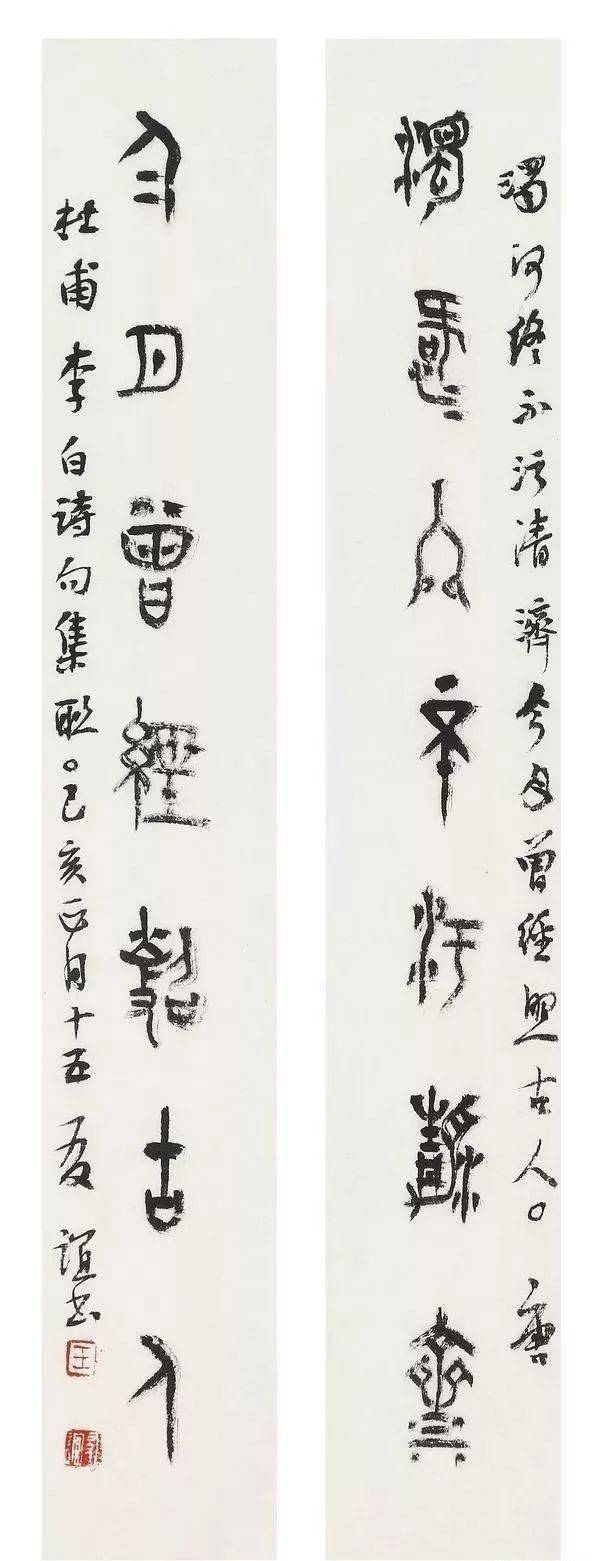 濁河終不污清濟今月曾經照古人。唐
濁河終不污清濟
今月曾經照古人
杜甫李白詩句集聯。己亥正月十五友誼書
王